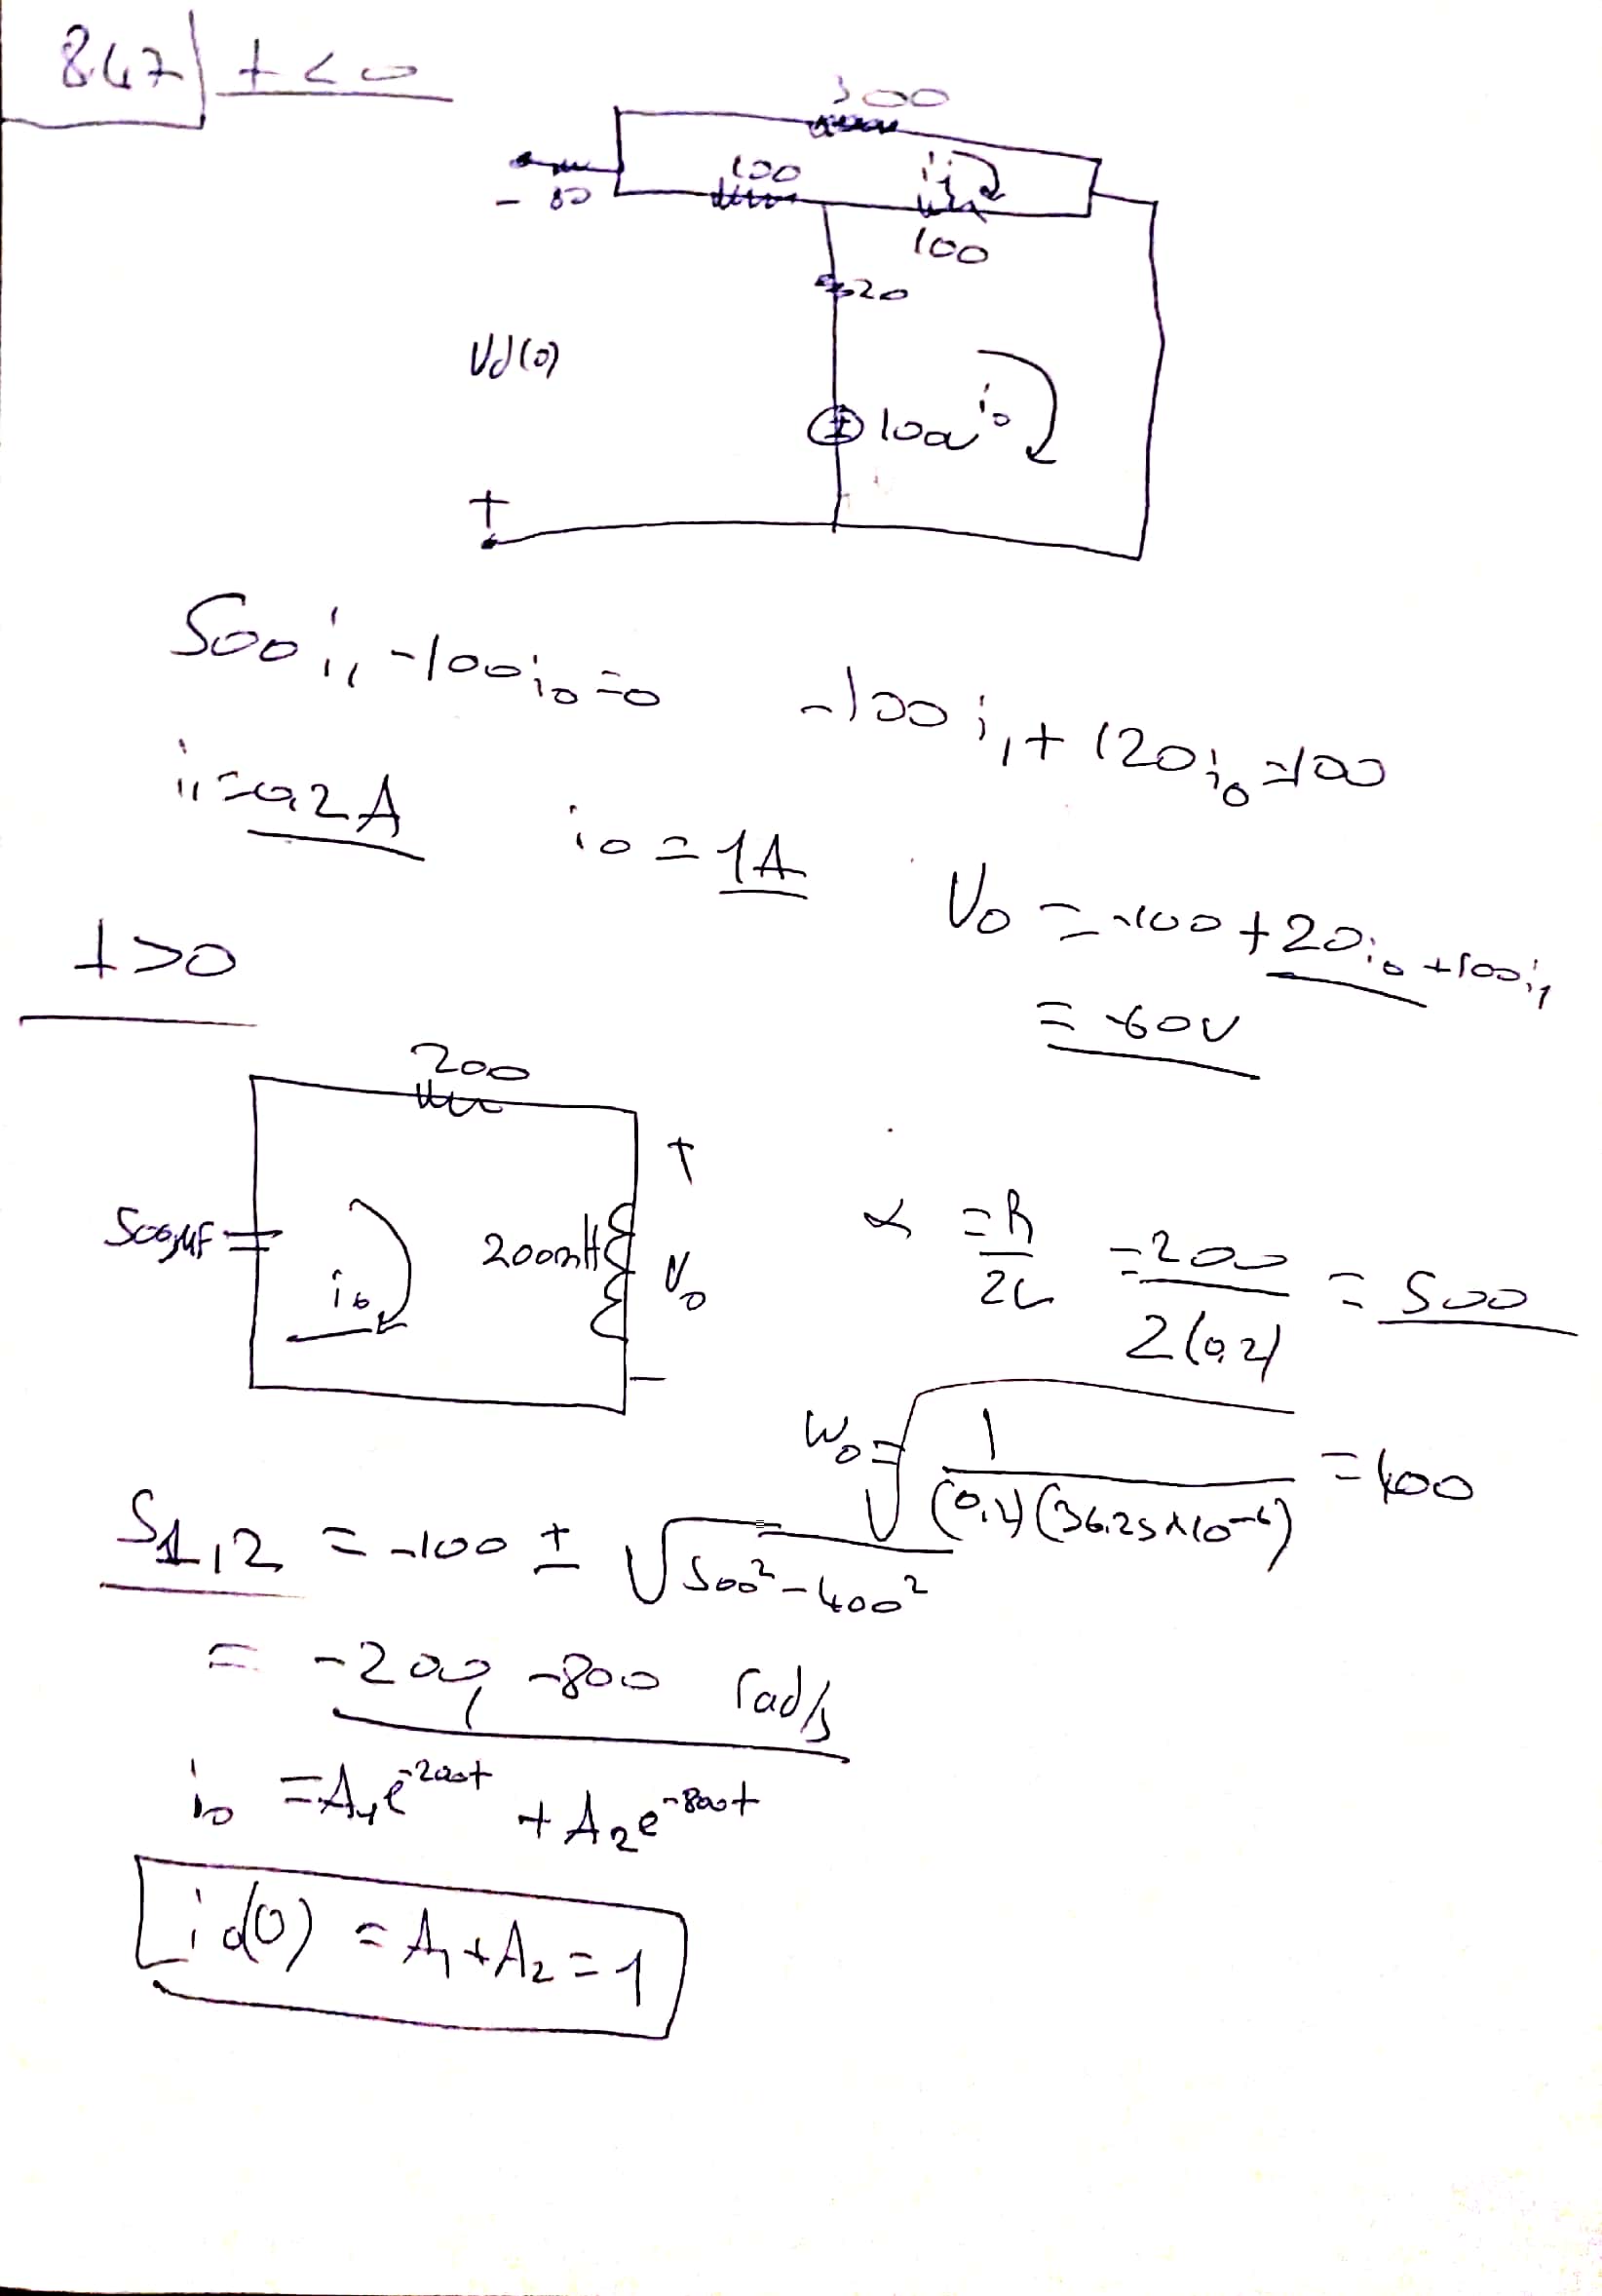 847 t<0
300
100
i₁
- 80
100
20
Vd(0)
100 i₀
+
500i₁ -100i₀=0 -100i₁+120i₀=100
i₁=0,2A i₀=1A
V₀ = -100+20i₀+100i₁
= -60V
t>0
200
+
500μF i₀ 200mH V₀
-
α =R/2L =200/2(0,2) = 500
W₀=√1/(0,2)(36.25×10⁻⁶) =400
S1,2 = -100 ± √500²-400²
= -200, -800 rad/s
i₀ =A₁e^-200t +A₂e^-800t
id(0) = A₁+A₂=1